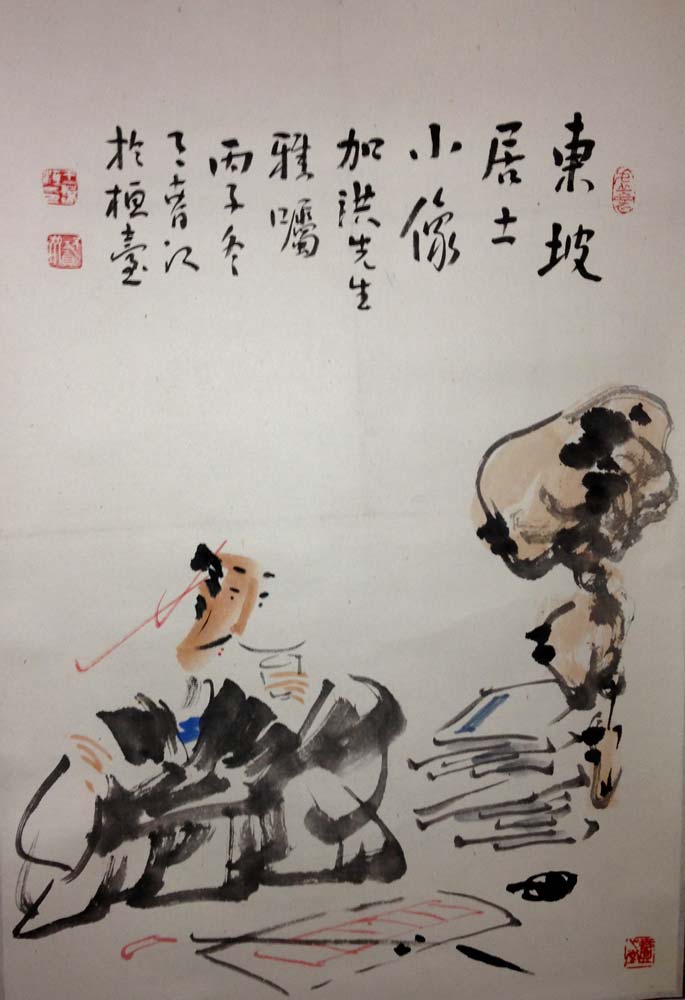 東坡
居士
小像
加洪先生
雅囑
丙子冬
於桓臺